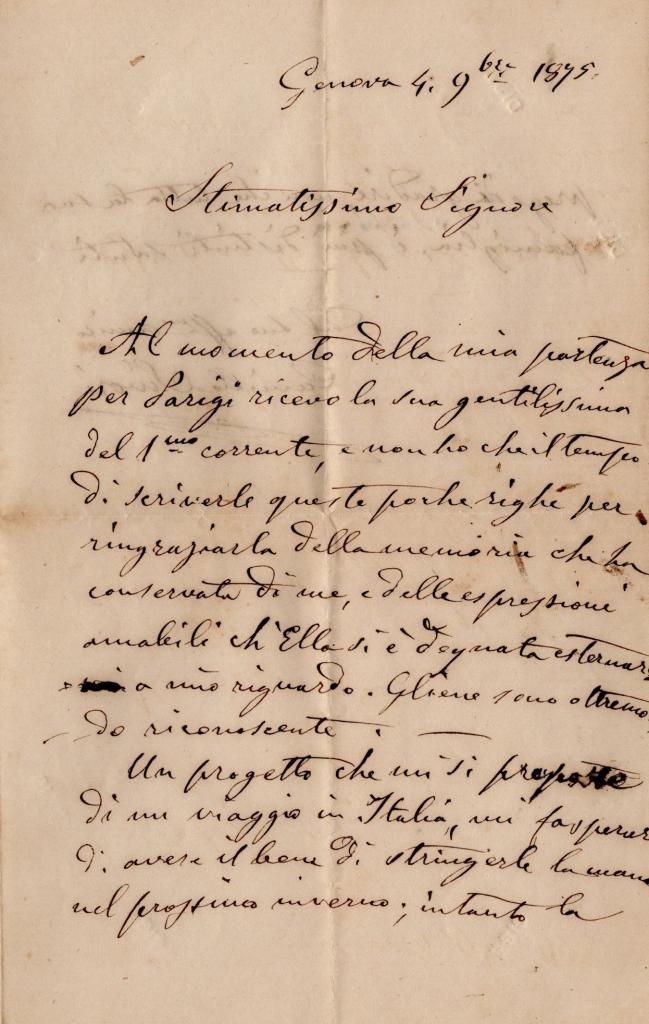 Genova 4. 9bre 1875.
Stimatissimo Signore
Al momento della mia partenza
per Parigi ricevo la sua gentilissima
del 1mo corrente, e non ho che il tempo
di scriverle queste poche righe per
ringraziarla della memoria che ha
conservata di me, e delle espressioni
amabili ch'Ella si è degnata esternare
a mio riguardo. Gliene sono oltremo
do riconoscente. —
Un progetto che mi si
di un viaggio in Italia, mi fa sperar
di avere il bene di stringerle la mano
nel prossimo inverno; intanto la